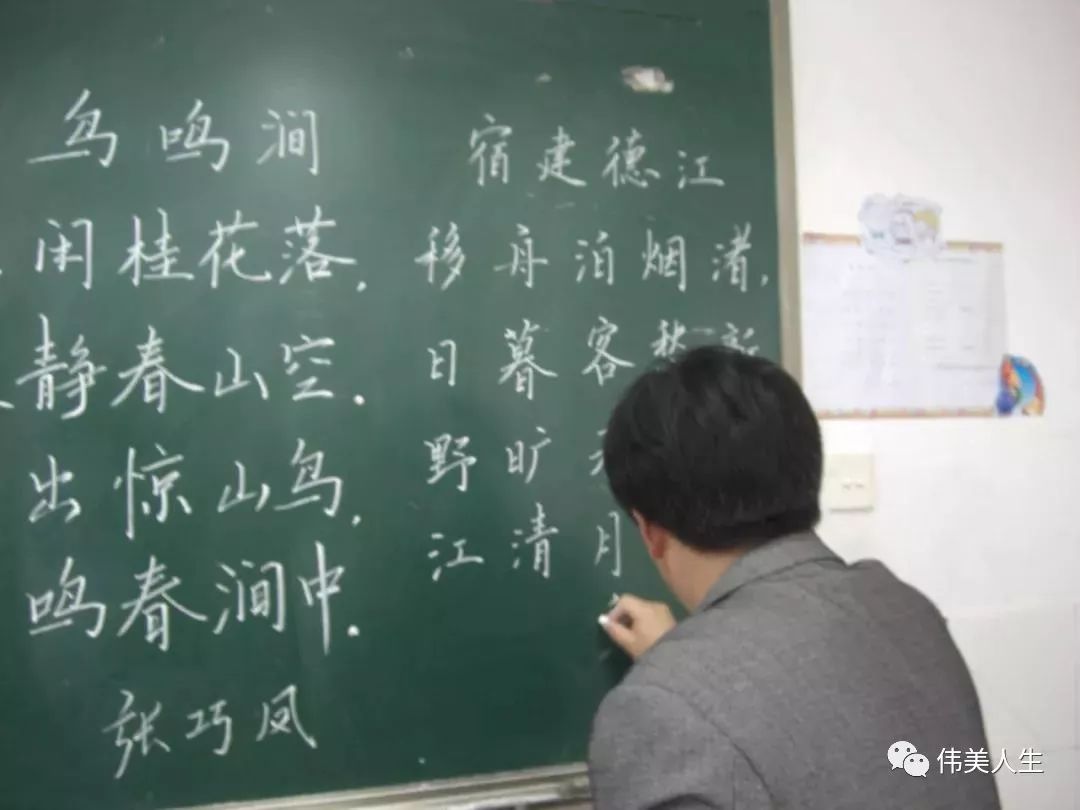 鸟鸣涧
闲桂花落，
静春山空．
出惊山鸟，
鸣春涧中．
张巧凤
宿建德江
移舟泊烟渚，
日暮客愁新
野旷
江清月
伟美人生